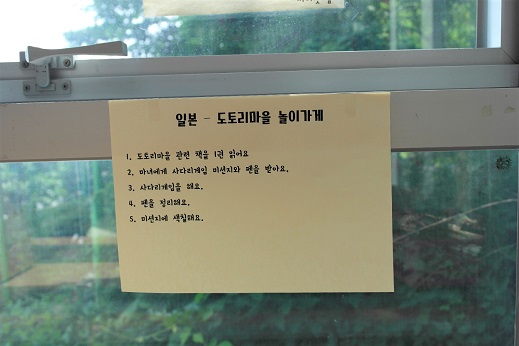 일본 - 도토리마을 놀이가게
1. 도토리마을 관련 책을 1권 읽어요
2. 마녀에게 사다리게임 미션지와 펜을 받아요.
3. 사다리게임을 해요.
4. 펜을 정리해요.
5. 미션지에 색칠해요.